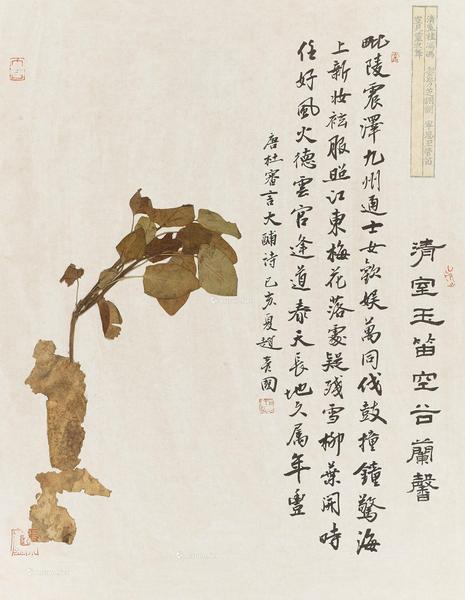 清室玉笛空谷蘭馨
毗陵震澤九州通士女歡娛萬同伐鼓撞鐘驚海
上新妝袨服照江東梅花落處疑殘雪柳葉開時
任好風火德雲官逢道泰天長地久屬年豐
唐杜審言大酺诗己亥夏趙國